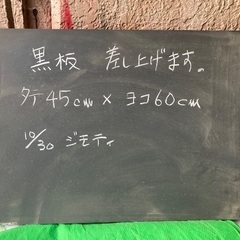 黒板 差し上げます。
タテ45cm × ヨコ60cm
10/30 ジモティ